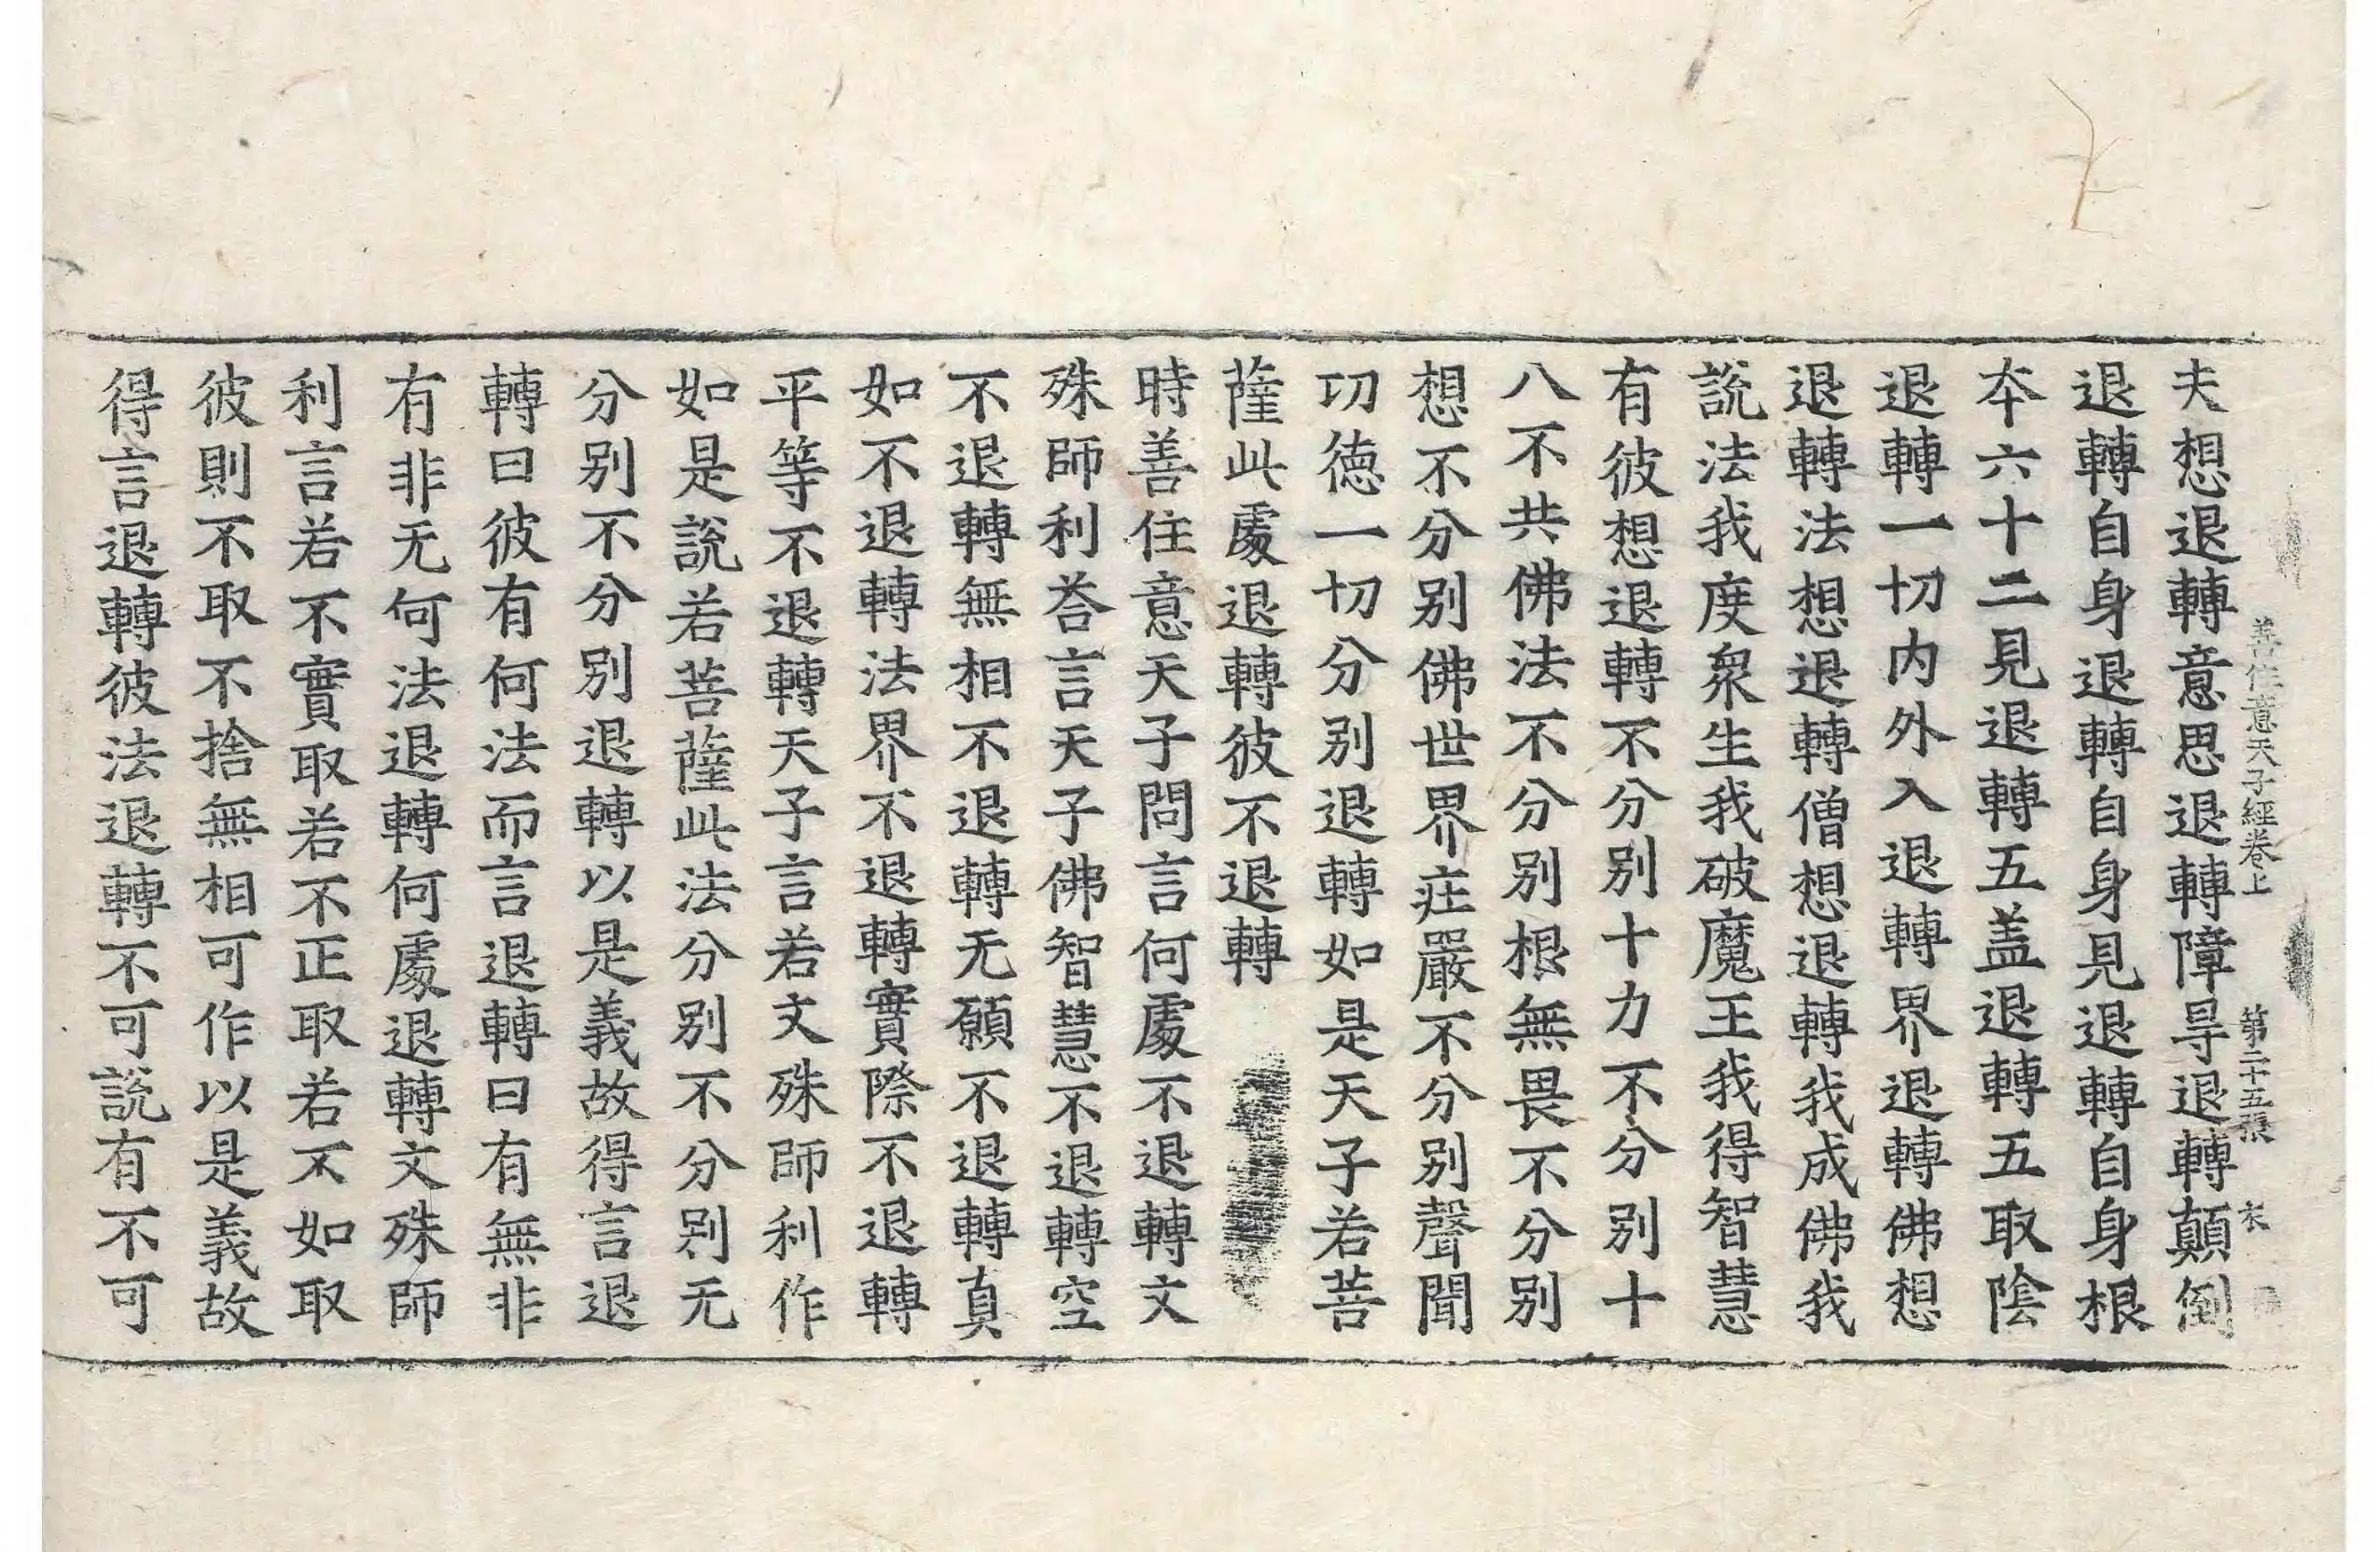 善住意天子經卷上　第二十五張　宋
夫想退轉意思退轉障㝵退轉顛倒
退轉自身退轉自身見退轉自身根
夲六十二見退轉五盖退轉五取陰
退轉一切內外入退轉界退轉佛想
退轉法想退轉僧想退轉我成佛我
說法我度衆生我破魔王我得智慧
有彼想退轉不分別十力不分別十
八不共佛法不分別根無畏不分別
想不分別佛世界庄嚴不分別聲聞
㓛德一切分別退轉如是天子若菩
薩此䖏退轉彼不退轉
時善住意天子問言何䖏不退轉文
殊師利荅言天子佛智慧不退轉空
不退轉無相不退轉无願不退轉真
如不退轉法界不退轉實際不退轉
平等不退轉天子言若文殊師利作
如是說若菩薩此法分別不分別无
分別不分別退轉以是義故得言退
轉曰彼有何法而言退轉曰有無非
有非无何法退轉何䖏退轉文殊師
利言若不實取若不正取若不如取
彼則不取不捨無相可作以是義故
得言退轉彼法退轉不可說有不可